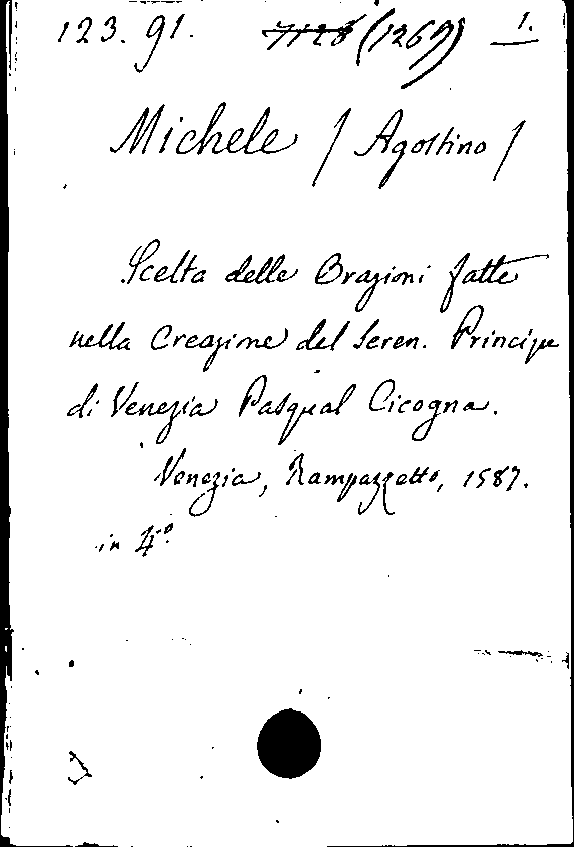 123.91. 7128 (1269) 1.
Michele / Agostino /
Scelta delle Orazioni fatte
nella Creazione del Seren. Principe
di Venezia Pasqual Cicogna.
Venezia, Rampazzetto, 1587.
in 4°